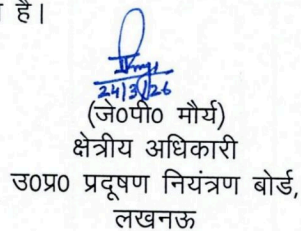 है।
24/3/26
(जे०पी० मौर्य)
क्षेत्रीय अधिकारी
उ०प्र० प्रदूषण नियंत्रण बोर्ड,
लखनऊ